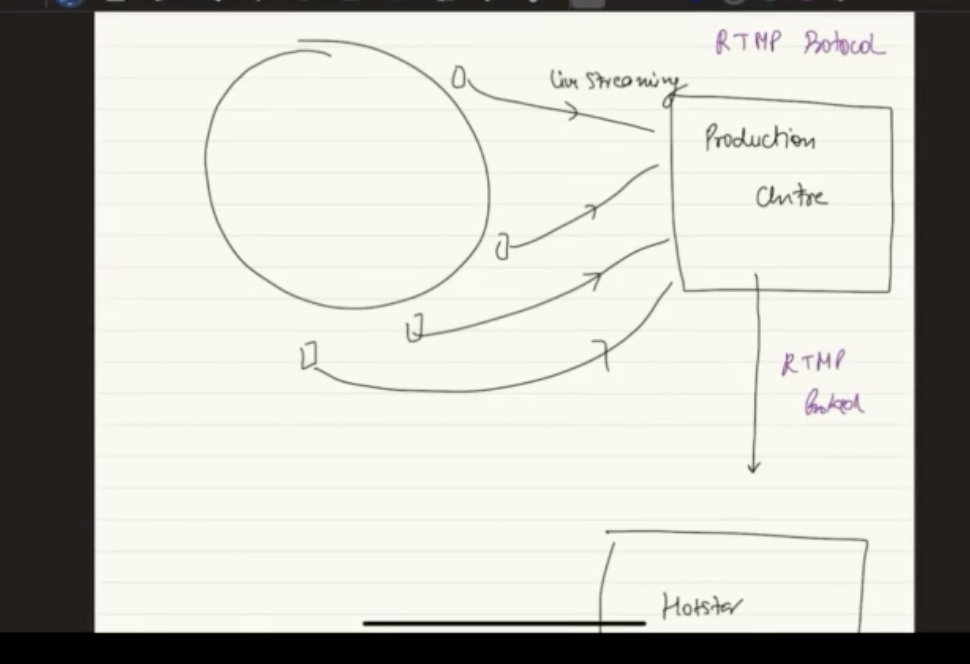 RTMP Protocol
Live Streaming
Production
Centre
RTMP
Protocol
Hotstar